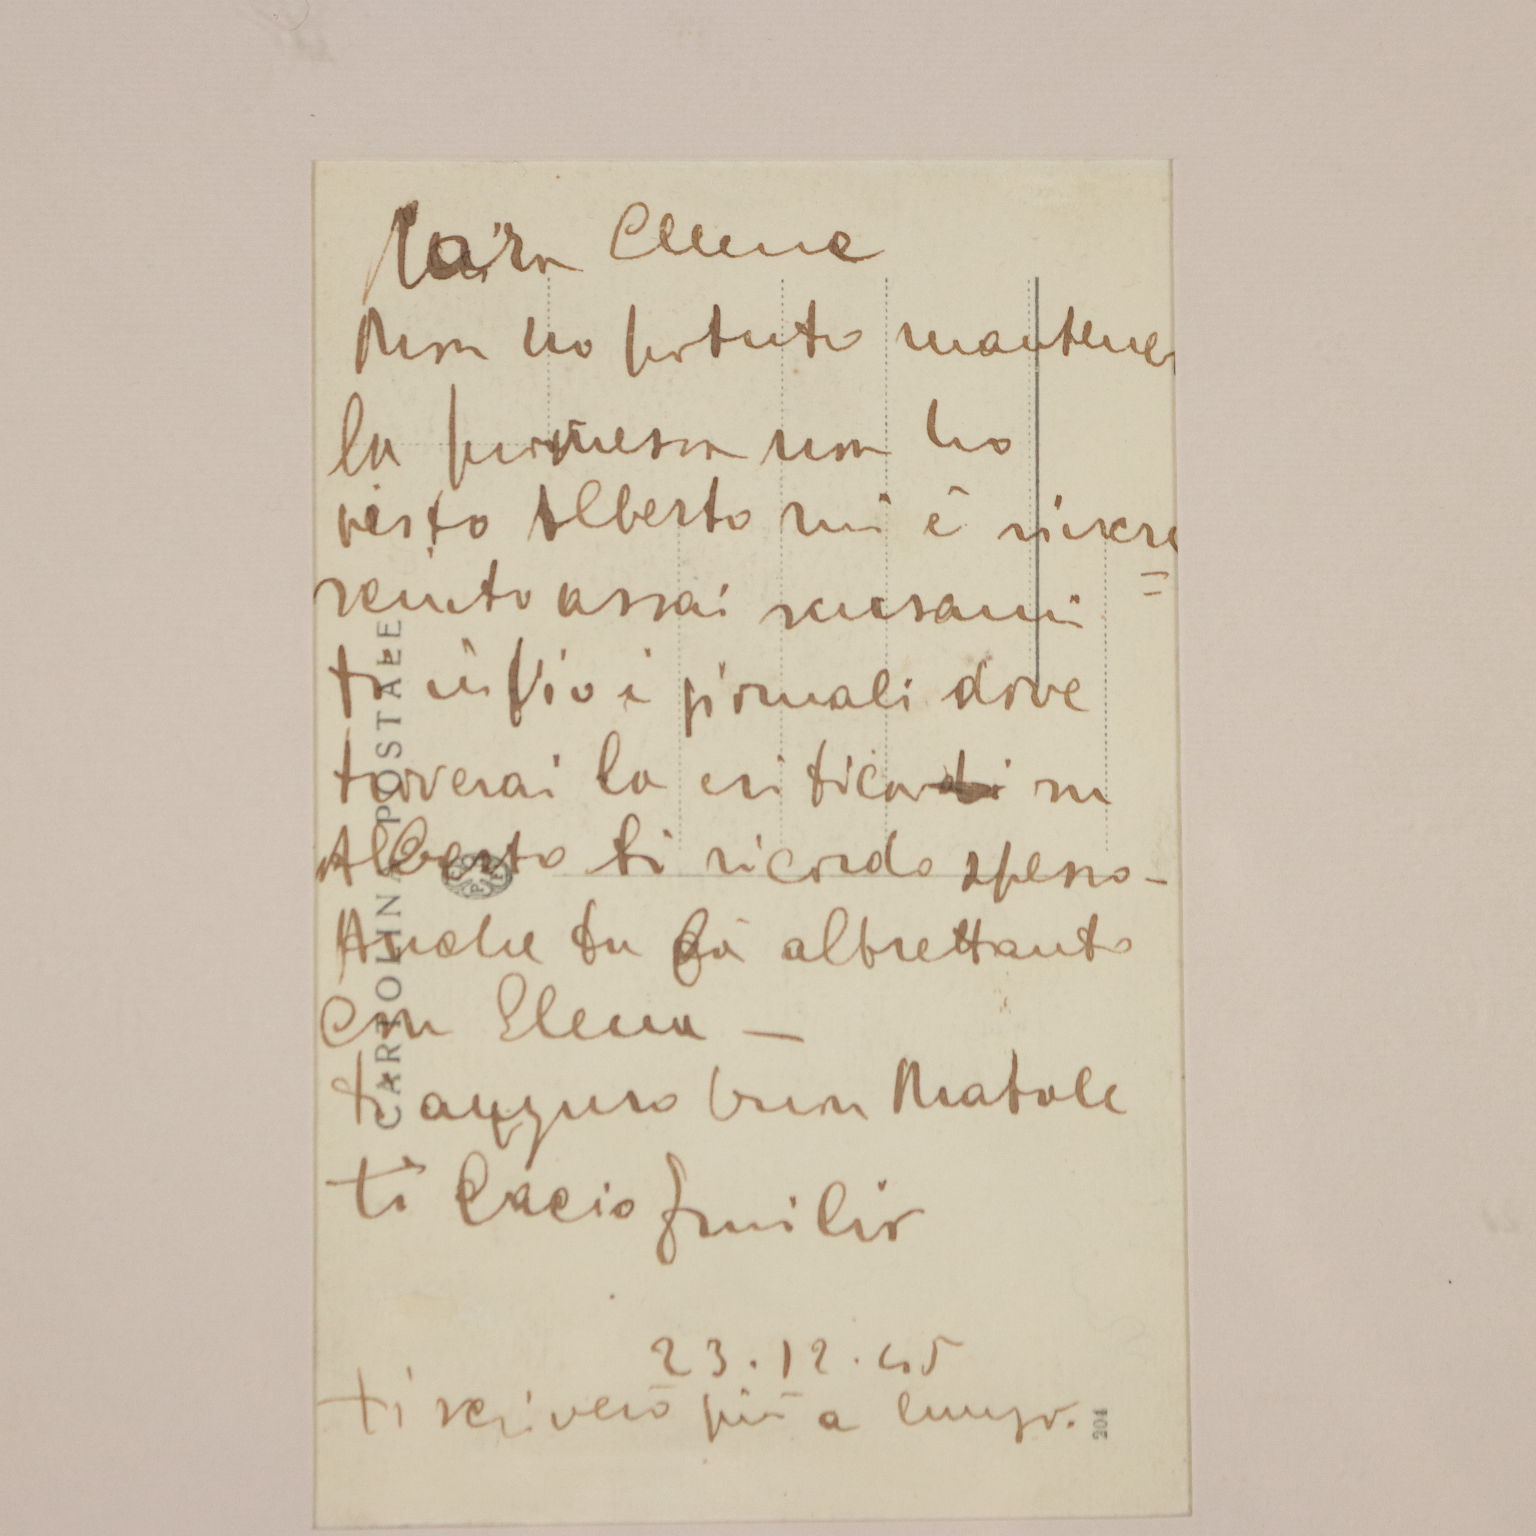 Cara Elena
Non ho potuto mantener
la promessa non ho
visto Alberto mi è rincre
sciuto assai scusami
ti invio i giornali dove
troverai la critica di su
Alberto ti ricorda spesso -
Anche tu fa altrettanto
Con Elena —
ti auguro buon Natale
ti bacio
23.12.45
ti scriverò più a lungo.
CARTOLINA POSTALE
204